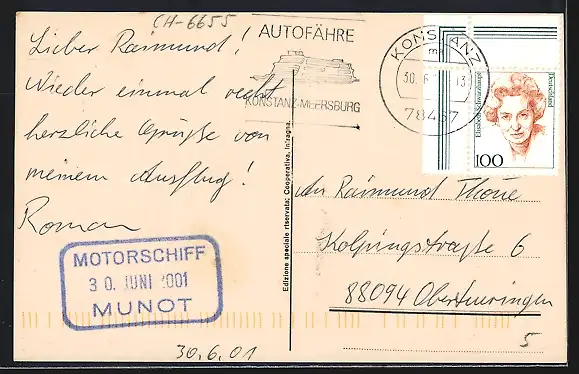 CH-6655
Lieber Raimund!
Wieder einmal recht
herzliche Grüße von
meinem Ausflug!
Roman
MOTORSCHIFF
30. JUNI 2001
MUNOT
30.6.01
AUTOFÄHRE
KONSTANZ-MEERSBURG
KONSTANZ
mm
30.6. 13
78467
Elisabeth Schwarzhaupt
Deutschland
100
Edizione speciale riservata: Cooperativa, Intragna
An Raimund Thoue
Kolpingstraße 6
88094 Oberteuringen
5